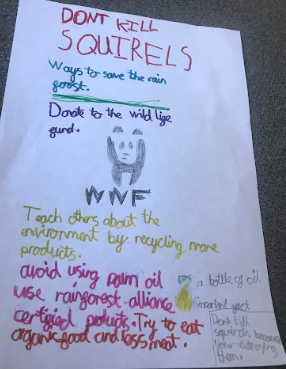 DONT KILL
SQUIRELS
Ways to save the rain
forest.
Donate to the wild life
fund.
WWF
Teach others about the
environment by recycling more
products.
avoid using palm oil
use rainforest-alliance
certified products. Try to eat
organic food and less meat.
a bottle of oil
important fact
Dont kill
squirels because
your
them.